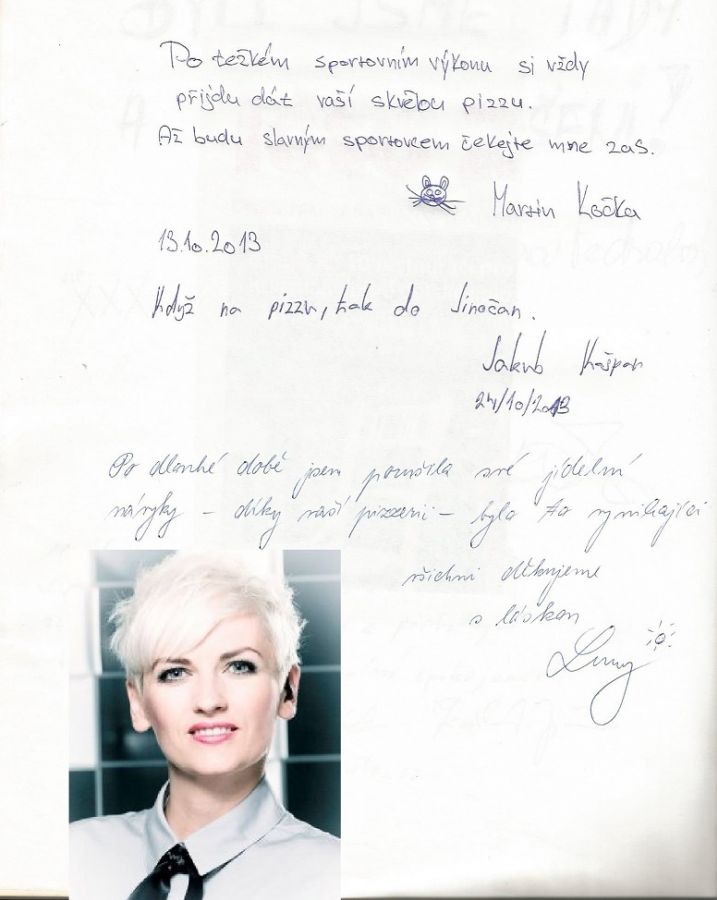 Po težkém sportovním výkonu si vždy
přijdu dát vaší skvělou pizzu.
Až budu slavným sportovcem čekejte mne zas.
Martin Kočka
13.10.2013
Když na pizzu, tak do Jinočan.
Jakub Kašpar
24/10/2013
Po dlouhé době jsem porušila své jídelní
návyky – díky vaší pizzerii – bylo to vynikající
všichni děkujeme
s láskou